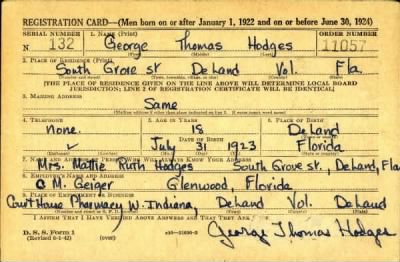 REGISTRATION CARD—(Men born on or after January 1, 1922 and on or before June 30, 1924)
SERIAL NUMBER 1. NAME (Print) ORDER NUMBER
N 132 George Thomas Hodges 11057
2. PLACE OF RESIDENCE (Print)
South Grove st DeLand Vol. Fla
[THE PLACE OF RESIDENCE GIVEN ON THE LINE ABOVE WILL DETERMINE LOCAL BOARD
JURISDICTION; LINE 2 OF REGISTRATION CERTIFICATE WILL BE IDENTICAL]
3. MAILING ADDRESS
Same
4. TELEPHONE 5. AGE IN YEARS 6. PLACE OF BIRTH
none. 18 DeLand
DATE OF BIRTH
July 31 1923 Florida
7. NAME AND ADDRESS OF PERSON WHO WILL ALWAYS KNOW YOUR ADDRESS
Mrs. Mattie Ruth Hodges South Grove st., DeLand, Fla
8. EMPLOYER'S NAME AND ADDRESS
C M. Geiger Glenwood, Florida
9. PLACE OF EMPLOYMENT OR BUSINESS
Court House Pharmacy W. Indiana, DeLand Vol. DeLand
I AFFIRM THAT I HAVE VERIFIED ABOVE ANSWERS AND THAT THEY ARE TRUE.
D. S. S. Form 1
(Revised 6-1-42) George Thomas Hodges